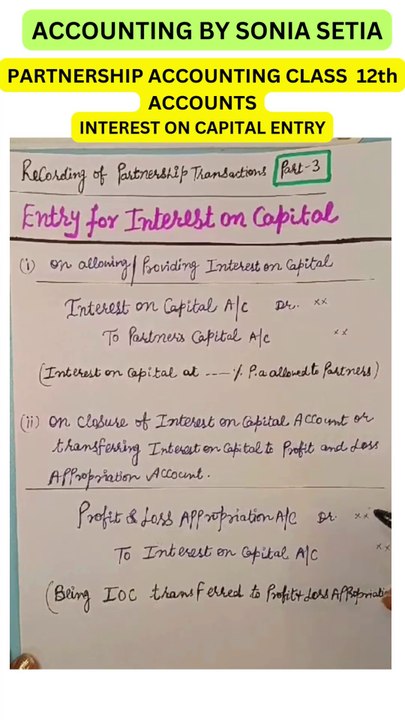 ACCOUNTING BY SONIA SETIA
PARTNERSHIP ACCOUNTING CLASS 12th
ACCOUNTS
INTEREST ON CAPITAL ENTRY
Recording of Partnership Transactions Part-3
Entry for Interest on Capital
(i) on allowing/Providing Interest on Capital
Interest on Capital A/C Dr. xx
To Partner's Capital A/C xx
(Interest on Capital at ---- % P.a allowed to Partners)
(ii) on closure of Interest on Capital Account or
transferring Interest on Capital to Profit and Loss
Appropriation Account.
Profit & Loss Appropriation A/C Dr xx
To Interest on Capital A/C xx
(Being IOC transferred to Profit & Loss Appropriation